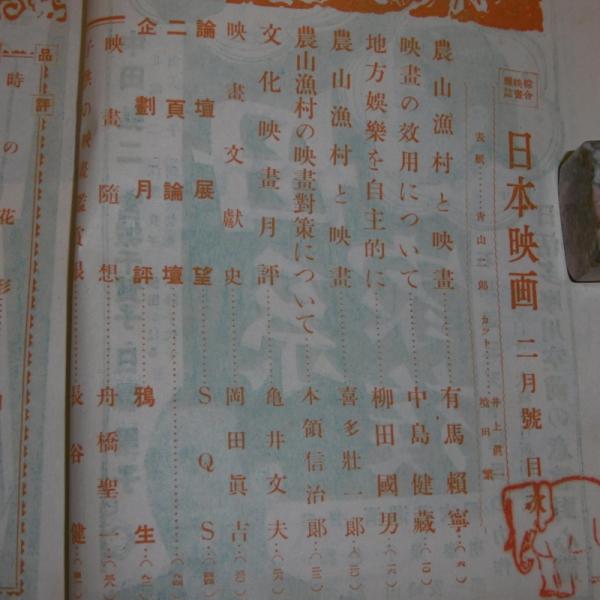 綜合映畫雜誌
日本映画 二月號 目次
表紙……青山二郎 カット……井上眞
農山漁村と映畫……有馬賴寧…(六)
映畫の效用について……中島健藏…(一〇)
地方娯樂を自主的に……柳田國男
農山漁村と映畫……喜多壯一郎
農山漁村の映畫對策について……本領信治郎
文化映畫月評……亀井文夫
映畫文獻史……岡田眞吉
論壇展望……SQS
二頁論壇
企劃月評……鴉生
映畫隨想……舟橋聖一
子供の映畫鑑賞眼……長谷健
品評
時の花形